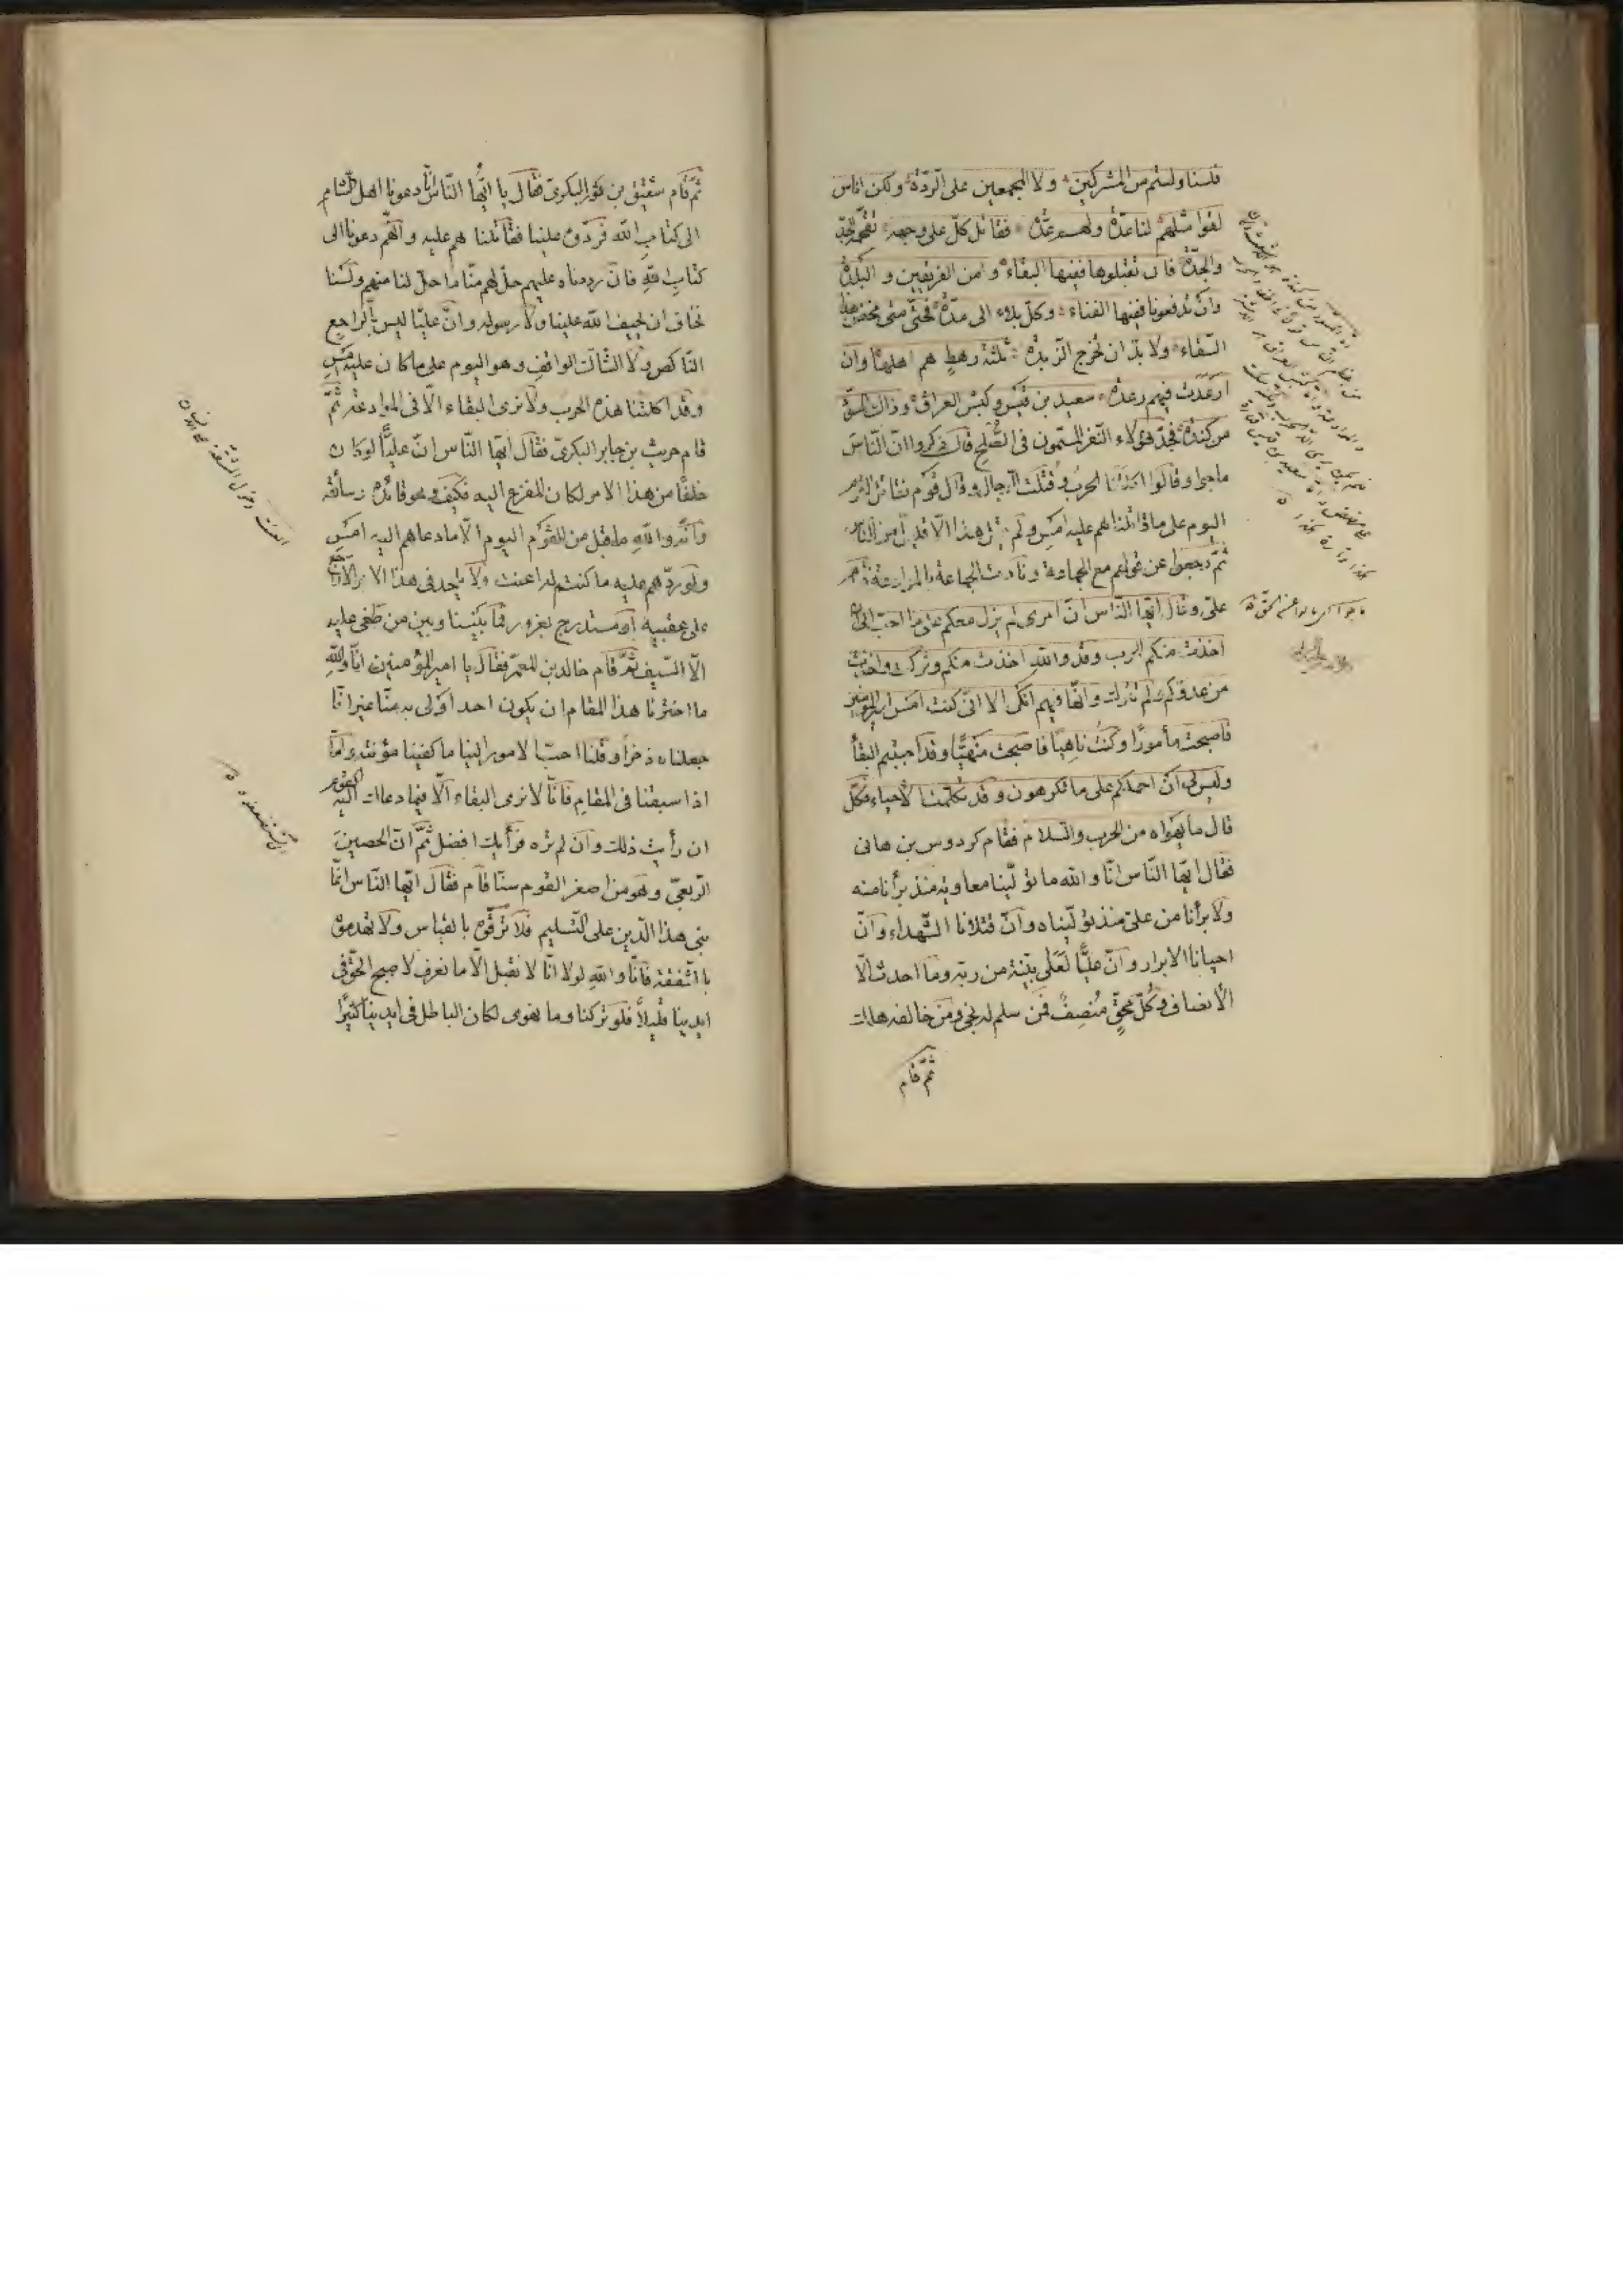 فلسنا ولستم من المشركين ولا المجمعين على الردّة ولكن اناس
لقوا مثلهم لنا عدّة ولهم عدّة فقاتل كلّ على وجهه تقحمه الجدّ
والجدّة فان تقبلوها ففيها البقاء وامن الفريقين والبلدة
وان تدفعوها ففيها الفناء وكل بلاء الى مدّة فحتّى متى مخض هذا
السقاء ولا بدّ ان تخرج الزبدة ثلثة رهط هم اهلها وان
من كندة فجدّ هؤلاء النّفر المسمّون في الصّلح قال ذكروا انّ النّاس
ماجوا وقالوا اكلتنا الحرب وقتلت الرجال وقال قوم نقاتل القوم
اليوم على ما قاتلناهم عليه امس ولم يقل هذا الّا قليل من الناس
ثمّ رجعوا عن قولهم مع الجماعة ونادت الجماعة بالموادعة فقام
علىّ وقال ايّها النّاس انّ امرى لم يزل معكم على ما احبّ الى ان
اخذت منكم الحرب وقد والله اخذت منكم وتركت واخذت
من عدوكم ولم تترك وانّها فيهم انكى الا انّى كنت امس امير المؤمنين
فاصبحت مأمورًا وكنت ناهيًا فاصبحت منهيًّا وقد احببتم البقاء
وليس لى ان احملكم على ما تكرهون وقد تكلّمنا الاحياء فكلّ
قال ما يهواه من الحرب والسلام فقام كردوس بن هانى
فقال ايّها النّاس انّا والله ما تولّينا معاوية منذ برأنا منه
ولا برأنا من علىّ منذ تولّيناه وانّ قتلانا الشّهداء وانّ
احيانا الابرار وانّ عليًّا لعلى بيّنة من ربّه وما احدث الّا
الانصاف وكُلّ مُحِقٍّ مُنصِفٌ فمن سلم له نجى ومن خالفه هلك
ثمّ قام
ثمّ قام شقيق بن ثور البكرىّ فقال يا ايّها النّاس انّا دعونا اهل الشام
الى كتاب الله فردّوه علينا فقاتلناهم عليه وانّهم دعونا الى
كتاب الله فان رددناه عليهم حلّ لهم منّا ما حلّ لنا منهم ولسنا
نخاف ان يحيف الله علينا ولا رسوله وانّ عليًّا ليس بالراجع
الناكص ولا الشاك الواقف وهو اليوم على ما كان عليه امس
وقد اكلتنا هذه الحرب ولا نرى البقاء الّا في الموادعة ثمّ
قام حريث بن جابر البكرىّ فقال ايّها النّاس انّ عليًّا لو كان
خلفًا من هذا الامر لكان المفزع اليه فكيف وهو قائده وسائقه
وانّه والله ما قبل من القوم اليوم الّا ما دعاهم اليه امس
ولو ردّه عليهم ما كنتم له اعنت ولا يلحد في هذا الامر الا راجع
على عقبيه او مستدرج بغرور فما بيننا وبين من طغى عليه
الّا السّيف ثمّ قام خالد بن المعمّر فقال يا امير المؤمنين انّا والله
ما اخترنا هذا المقام ان يكون احد اولى به منّا غير انّا
جعلناه ذخرًا وقلنا احبّ الامور الينا ما كفينا مؤنته وامّا
اذا سبقنا في المقام فانّا لا نرى البقاء الّا فيما دعاك اليه القوم
ان رأيت ذلك وان لم تره فرأيك افضل ثمّ انّ الحصين
الرّبعىّ وهو من اصغر القوم سنًّا قام فقال ايّها النّاس انّما
بنى هذا الدّين على التّسليم فلا توفّروه بالقياس ولا تهدموه
بالشّفقة فانّا والله لولا انّا لا نقبل الّا ما نعرف لاصبح الحقّ في
ايدينا قليلًا ولو تركنا وما نهوى لكان الباطل في ايدينا كثيرًا